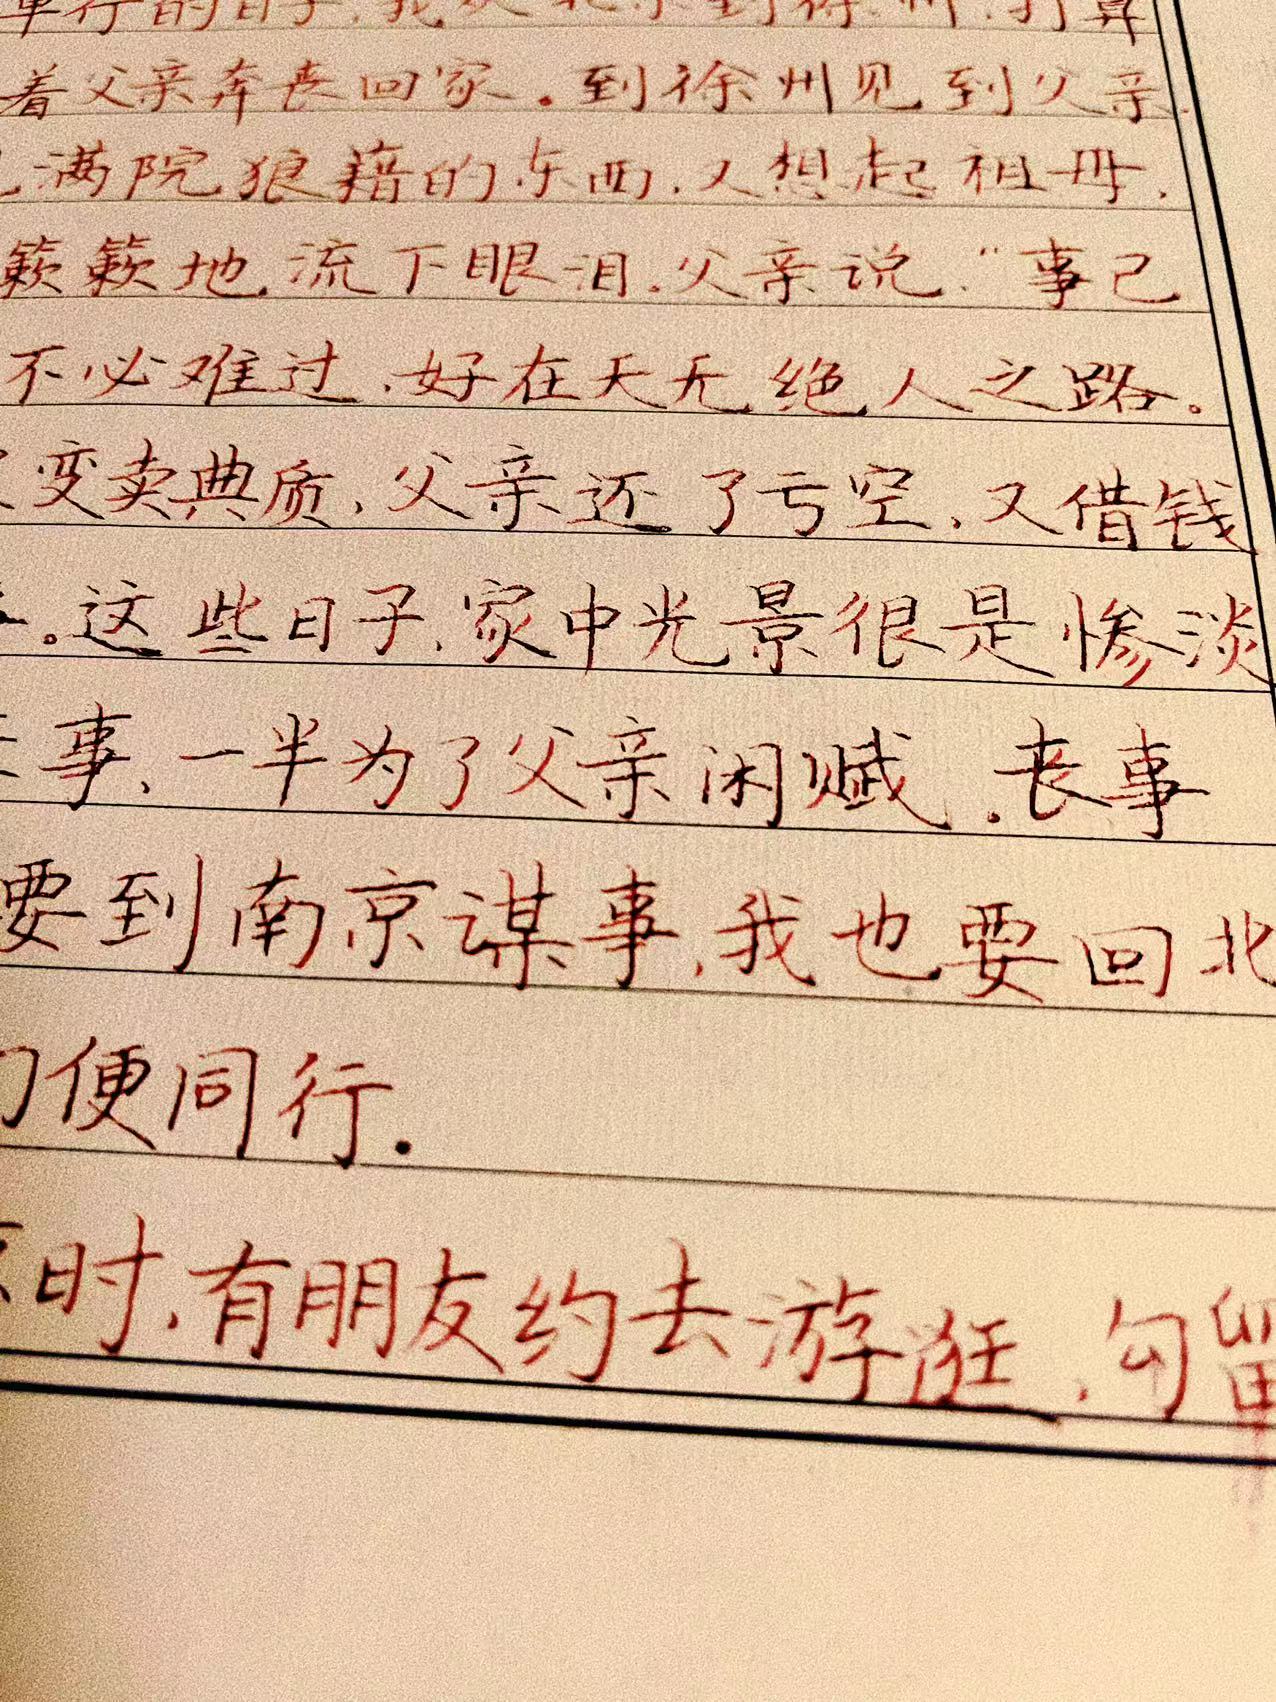 单行的日子,我从北京到徐州,打算
着父亲奔丧回家.到徐州见到父亲,
满院狼藉的东西,又想起祖母,
簌簌地流下眼泪.父亲说,“事已
不必难过,好在天无绝人之路。
变卖典质,父亲还了亏空,又借钱
。这些日子,家中光景很是惨淡
事,一半为了父亲闲赋.丧事
要到南京谋事,我也要回北
们便同行.
京时,有朋友约去游逛,勾留